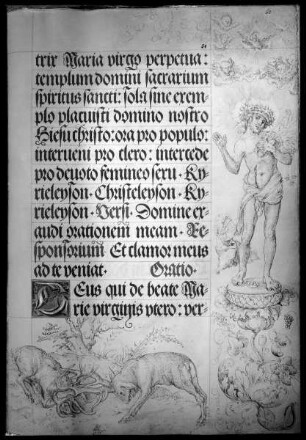 21
trix Maria virgo perpetua:
templum domini sacrarium
spiritus sancti: sola sine exem-
plo placuisti domino nostro
Hiesu christo: ora pro populo:
interueni pro clero: intercede
pro deuoto femineo sexu. Ky-
rieleyson. Christeleyson. Ky-
rieleyson. Versi. Domine ex-
audi orationem meam. Re-
sponsorium. Et clamor meus
ad te veniat. Oratio.
Deus qui de beate Ma-
rie virginis vtero: ver-